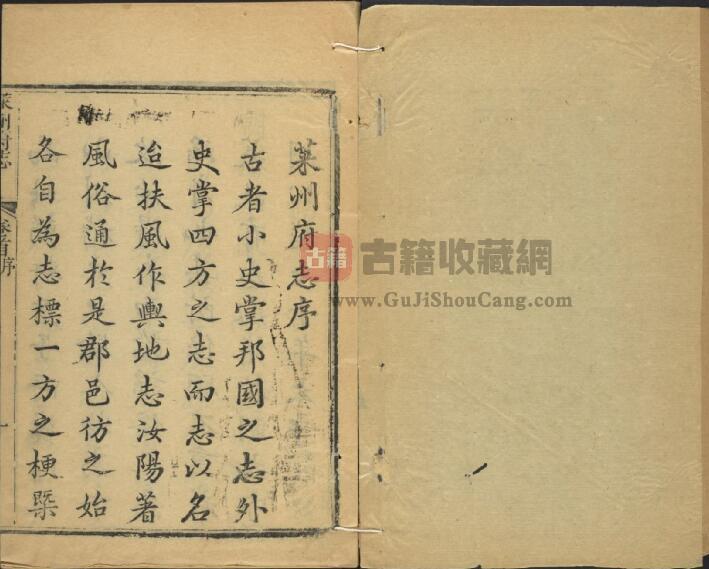 萊州府志序
古者小史掌邦國之志外
史掌四方之志而志以名
迨扶風作輿地志汝陽著
風俗通於是郡邑彷之始
各自為志標一方之梗槩
萊州府志
卷首序
一
古籍
古籍收藏網
www.GuJiShouCang.com